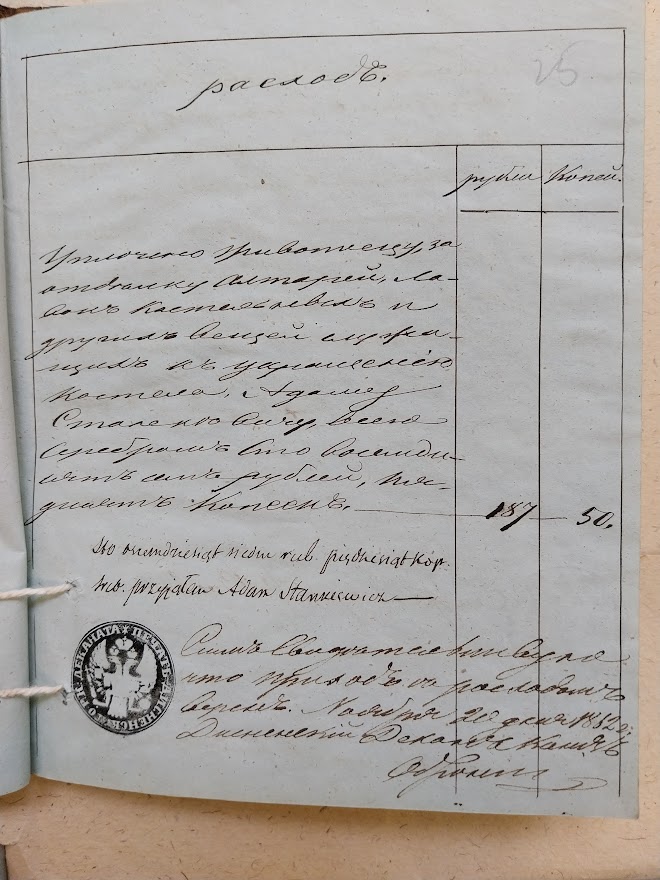 25
расходъ.
рубли Копей.
Уплочено живописцу, за
отделку Алтарей, ла-
вокъ костельныхъ и
другихъ вещей служа-
щихъ къ украшенію
костела, Адаму
Станкевичу, всего
серебромъ Сто восемде-
сятъ семь рублей, пять-
десятъ Копеекъ. 187 50.
Sto ośmdziesiąt siedm rub. pięćdziesiąt kop.
sreb. przyjąłem Adam Stankiewicz
Симъ Свидетельствую
что приходъ съ расходомъ
веренъ. Ноября 20 дня
Дисненскій Деканъ